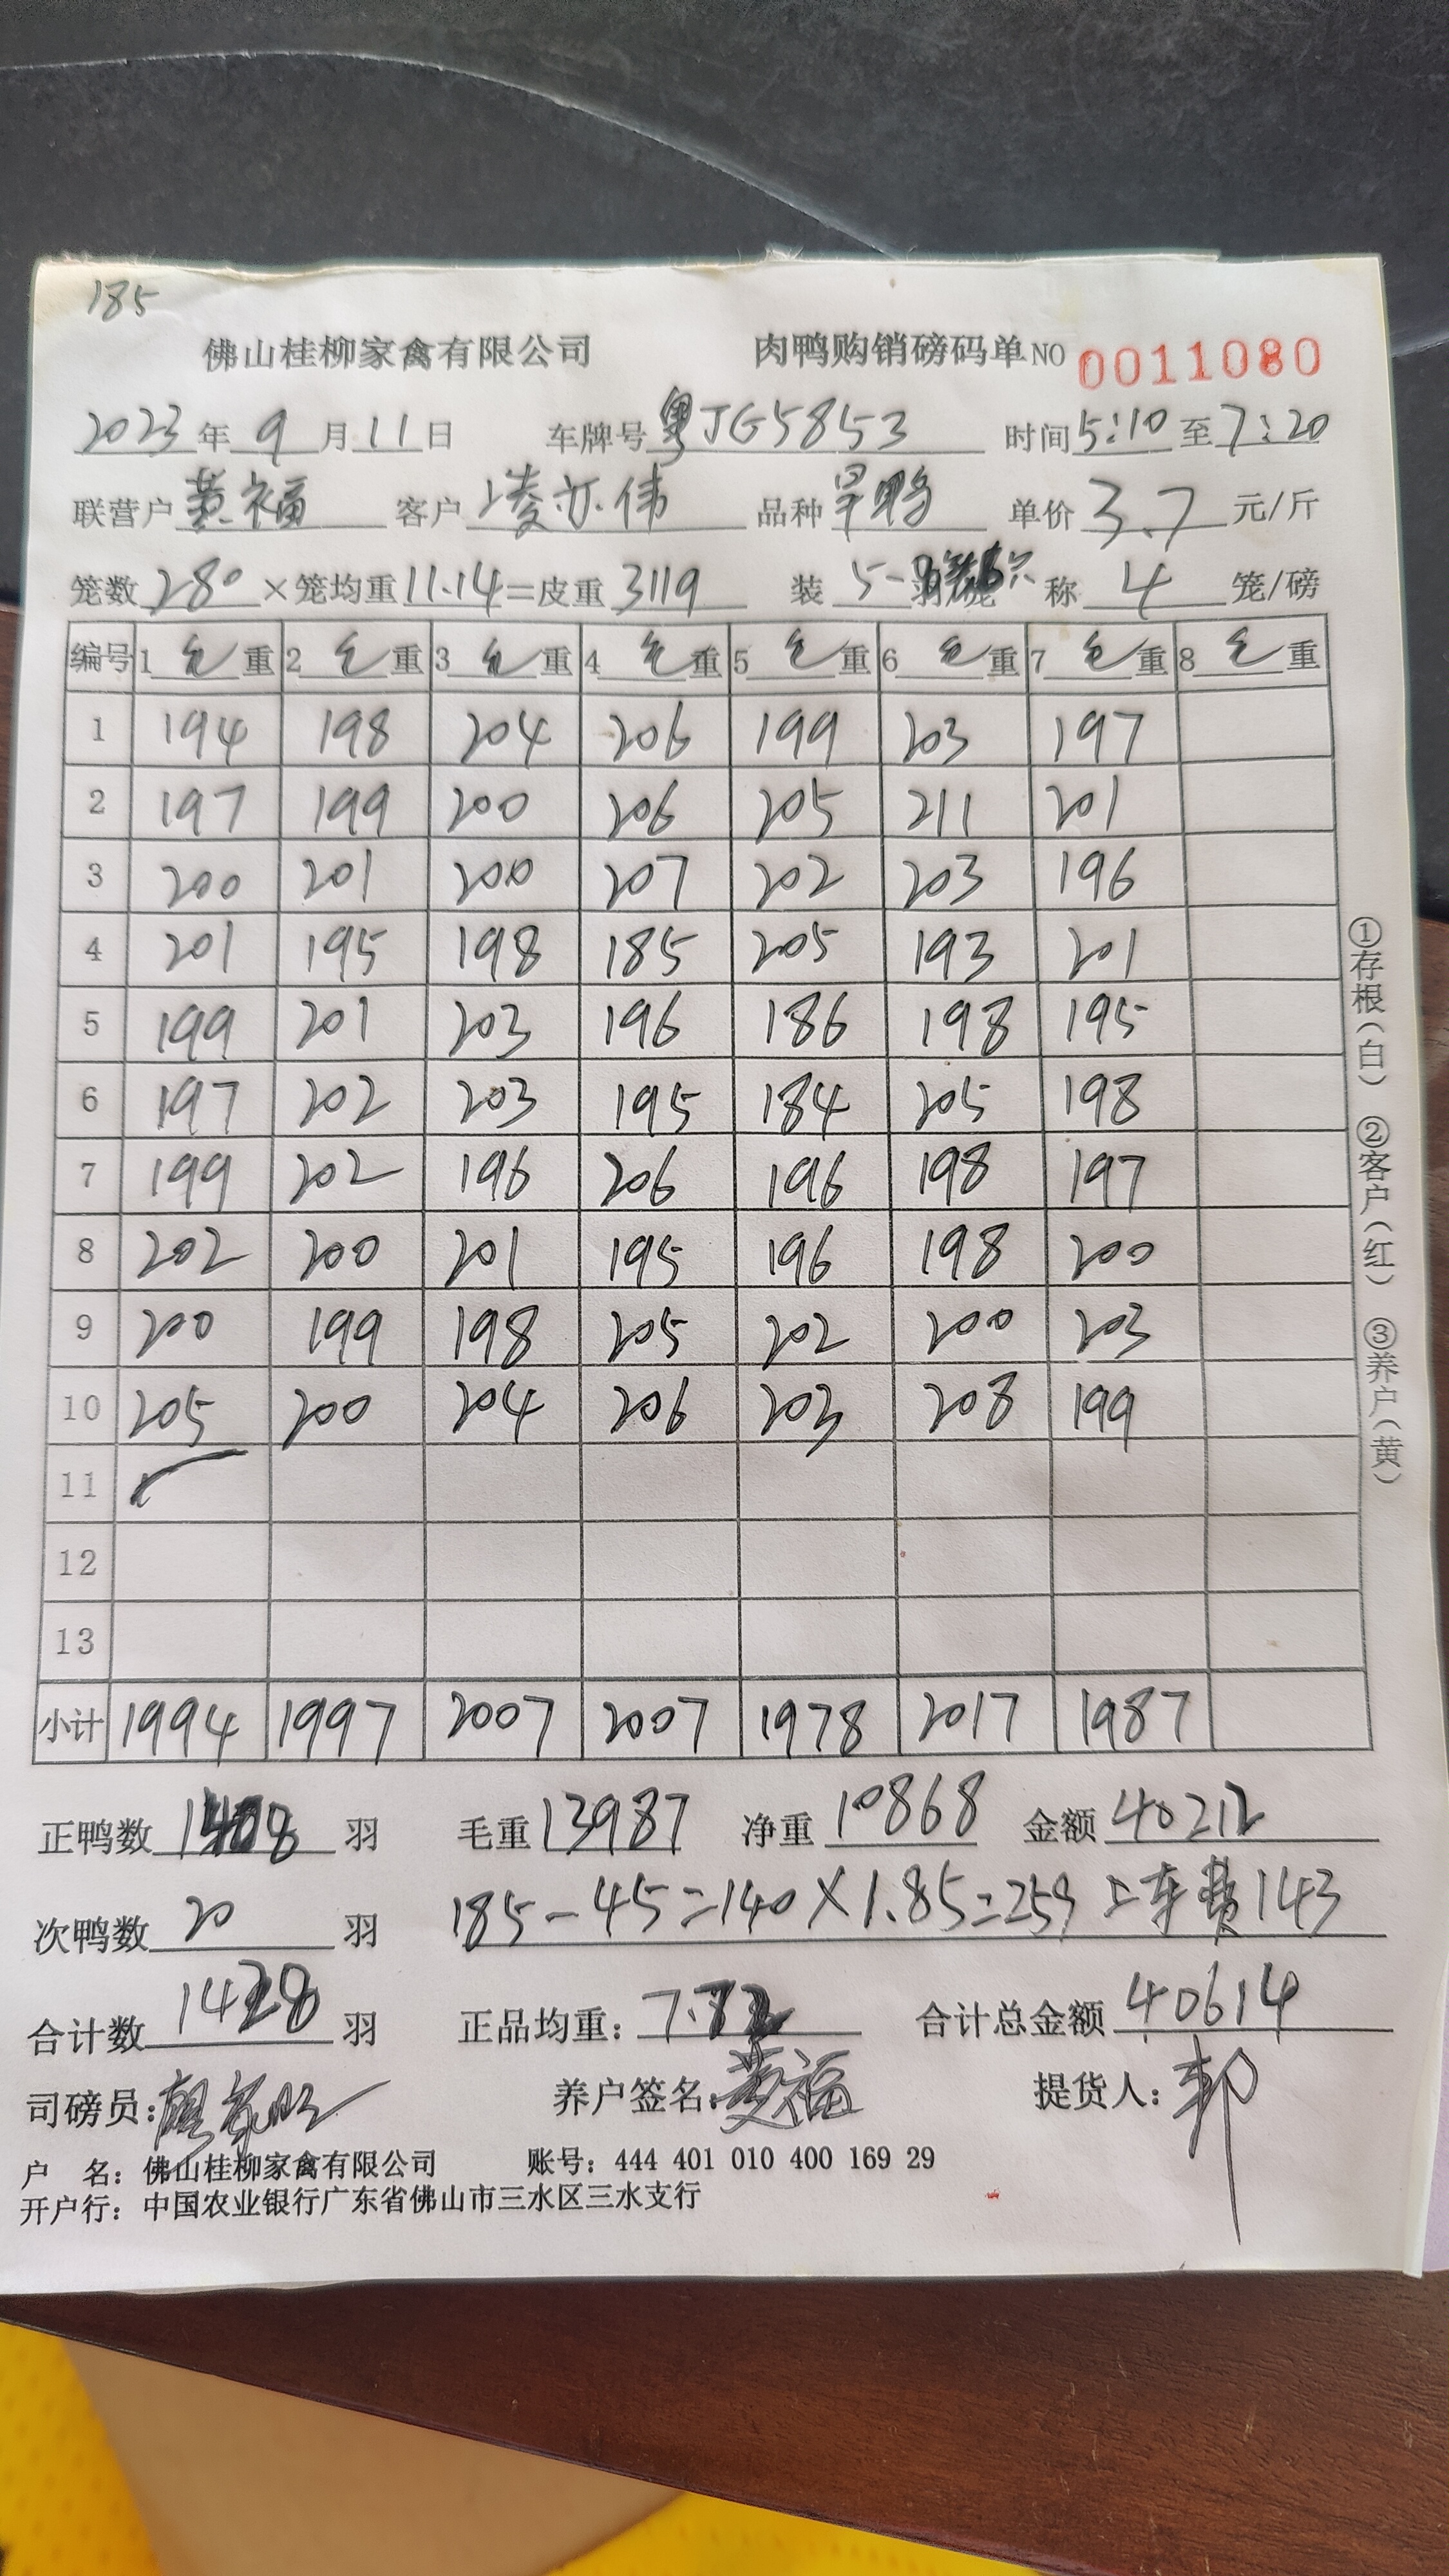 185
佛山桂柳家禽有限公司 肉鸭购销磅码单NO 0011080
2023年9月11日 车牌号粤JG5853 时间5:10至7:20
联营户黄福 客户凌亦伟 品种旱鸭 单价3.7元/斤
笼数280×笼均重11.14=皮重3119 装5- 称4笼/磅
编号 1毛重 2毛重 3毛重 4毛重 5毛重 6毛重 7毛重 8毛重
1 194 198 204 206 199 203 197
2 197 199 200 206 205 211 201
3 200 201 200 207 202 203 196
4 201 195 198 185 205 193 201
5 199 201 203 196 186 198 195
6 197 202 203 195 184 205 198
7 199 202 196 206 196 198 197
8 202 200 201 195 196 198 200
9 200 199 198 205 202 200 203
10 205 200 204 206 203 208 199
11
12
13
小计 1994 1997 2007 2007 1978 2017 1987
正鸭数1408羽 毛重13987 净重10868 金额40212
次鸭数20羽 185-45=140×1.85=259 上车费143
合计数1428羽 正品均重:7.72 合计总金额40614
司磅员: 养户签名:黄福 提货人:郭
户 名:佛山桂柳家禽有限公司 账号:444 401 010 400 169 29
开户行:中国农业银行广东省佛山市三水区三水支行
①存根(白) ②客户(红) ③养户(黄)